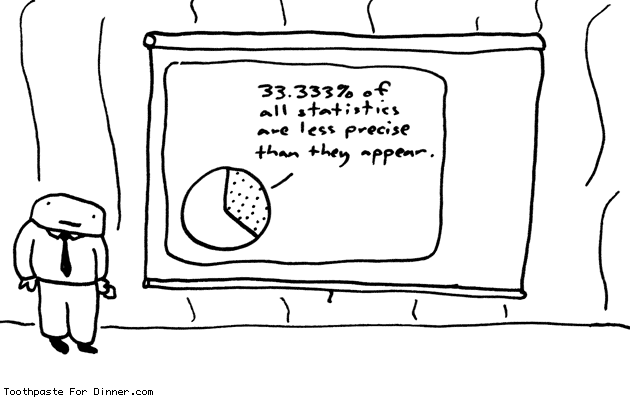 33.333% of
all statistics
are less precise
than they appear.
Toothpaste For Dinner.com